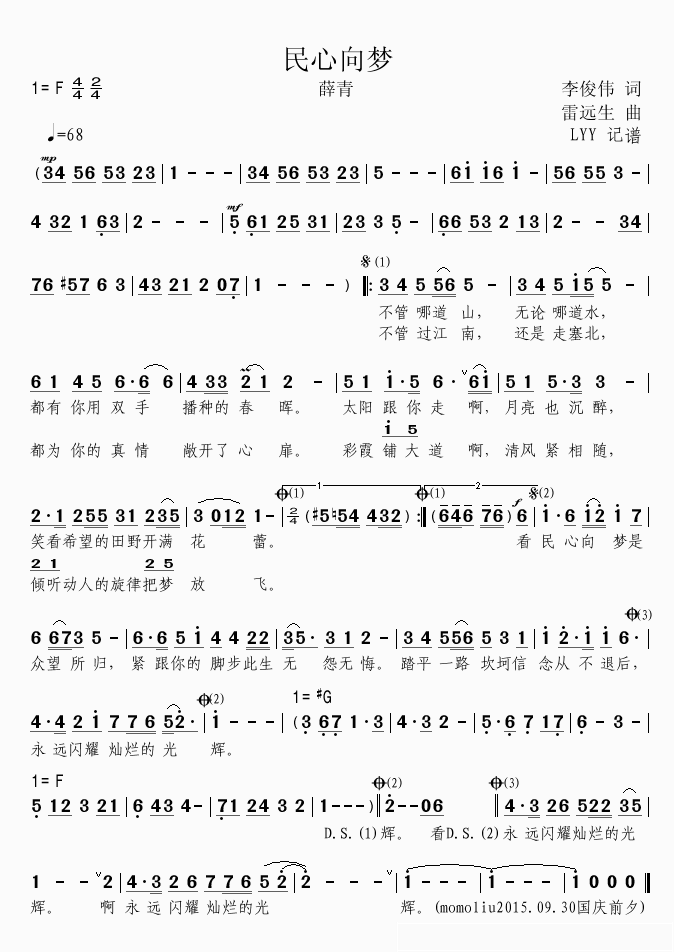 民心向梦
1= F 4/4 2/4 薛青 李俊伟 词
雷远生 曲
♩=68 LYY 记谱
mp
(34 56 53 23 | 1 - - - | 34 56 53 23 | 5 - - - | 61 16 1 - | 56 55 3 - |
mf
4 32 1 63 | 2 - - - | 5 61 25 31 | 23 3 5 - | 66 53 2 13 | 2 - - 34 |
𝄋(1)
76 #57 6 3 | 43 21 2 07 | 1 - - - ) |: 3 4 5 56 5 - | 3 4 5 15 5 - |
不管 哪道 山， 无论 哪道水，
不管 过江 南， 还是 走塞北，
6 1 4 5 6·6 6 | 4 33 21 2 - | 5 1 1·5 6· ˅61 | 5 1 5·3 3 - |
都有 你用 双 手 播种的 春 晖。 太阳 跟你走 啊，月亮 也 沉 醉，
1 5
都为 你的 真 情 敞开了 心 扉。 彩霞 铺大道 啊，清风 紧 相 随，
𝄌(1) 1 𝄌(1) 2 f 𝄋(2)
2·1 255 31 235 | 3 012 1- | 2/4 (#5♮54 432) :| (646 76) 6 | 1·6 12 1 7 |
笑看希望的田野开满 花 蕾。 看 民 心向 梦是
2 1 2 5
倾听动人的旋律把梦 放 飞。
𝄌(3)
6 673 5 - | 6·6 5 1 4 4 22 | 35· 3 1 2 - | 3 4 556 5 3 1 | 1 2·1 1 6· |
众望 所归， 紧 跟你的 脚步此生 无 怨无 悔。 踏平 一路 坎坷信 念从 不 退后，
𝄌(2) 1= #G
4·4 2 1 7 7 6 52· | 1 - - - | (3 67 1·3 | 4·3 2 - | 5·6 7 17 | 6 - 3 - |
永 远闪耀 灿烂的 光 辉。
1= F 𝄌(2) 𝄌(3)
5 12 3 21 | 6 43 4- | 71 24 3 2 | 1---) || 2--06 || 4·3 26 522 35 |
D.S.(1)辉。 看D.S.(2)永 远闪耀灿烂的光
1 - - ˅2 | 4·3 2 6 7 7 6 5 2 | 2 - - - ˅| 1 - - - | 1 - - - | 1 0 0 0 ||
辉。 啊 永 远 闪耀 灿烂的光 辉。(momoliu2015.09.30国庆前夕)